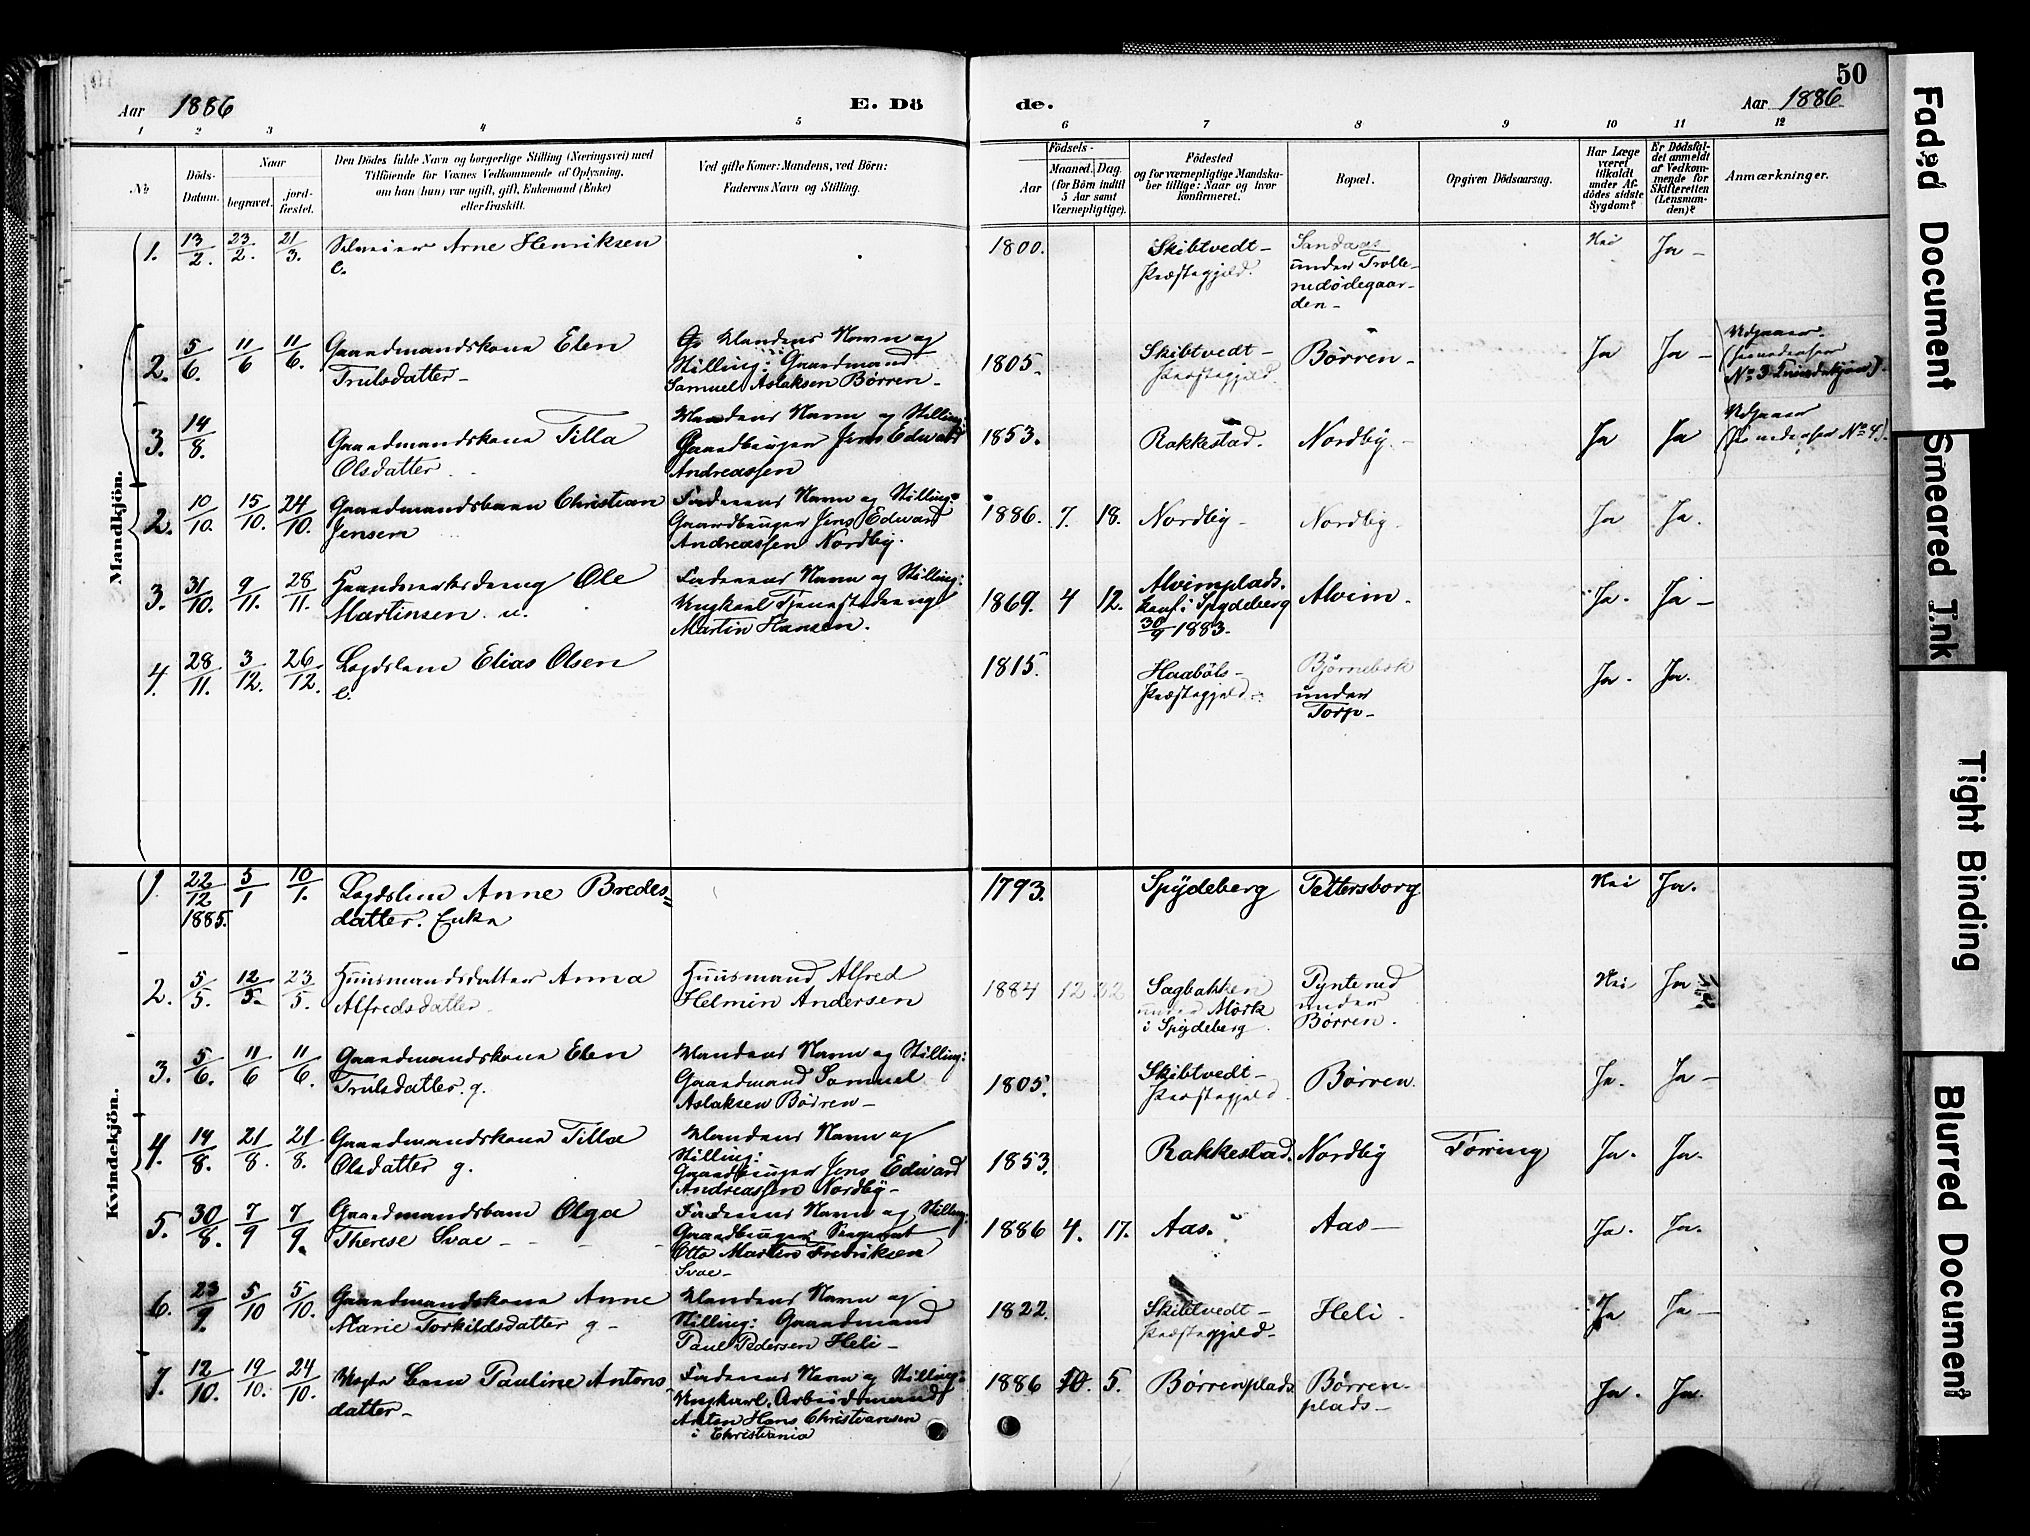 50
Aar 1886
E. Dö
de.
Aar 1886
1 2 3 4 5 6 7 8 9 10 11 12
No
Döds-
Datum.
Naar
begravet.
jord-
fæstet.
Den Dödes fulde Navn og borgerlige Stilling (Næringsvei) med
Tilföiende for Voxnes Vedkommende af Oplysning,
om han (hun) var ugift, gift, Enkemand (Enke)
eller fraskilt.
Ved gifte Koner: Mandens, ved Börn:
Faderens Navn og Stilling.
Födsels-
Aar
Maaned. Dag.
(for Börn indtil
5 Aar samt
Værnepligtige).
Födested
og for værnepligtige Mandska-
ber tillige: Naar og hvor
konfirmeret.
Bopæl.
Opgiven Dödsaarsag.
Har Læge
været
tilkaldt
under Af-
dödes sidste
Sygdom?
Er Dödsfal-
det anmeldt
af Vedkom-
mende for
Skifteretten
(Lensman-
den)?
Anmærkninger.
Mandkjön.
1. 13/2. 23/2. 21/3. Selveier Arne Henriksen 1800. Skibtvedt- Sandaas Nei Ja-
e. Præstegjeld. under Trolle-
rudödegaar-
den-
2. 5/6. 11/6 11/6. Gaardmandskona Elen Mandens Navn og 1805. Skibtvedt- Börren- Ja Ja- Udgaar
Trulsdatter- Stilling: Gaardmand Præstegjeld. (se nedenfor
Samuel Aslaksen Börren- No 3 Kvindekjön).
3. 14/8. Gaardmandskona Tilla Mandens Navn og Stilling: 1853. Rakkestad. Nordby.- Ja Ja Udgaar
Olsdatter Gaardbruger Jens Edward (se nedenfor No 4).
Andreassen
2. 10/10. 15/10. 24/10. Gaardmandsbarn Christian Faderens Navn og Stilling: 1886. 7. 18. Nordby- Nordby- Ja Ja.
Jensen Gaardbruger Jens Edward
Andreassen Nordby.
3. 31/10. 9/11. 28/11. Haandværksdreng Ole Faderens Navn og Stilling: 1869. 4 12. Alvimplads. Alvim. Ja. Ja-
Martinsen. u. Ungkarl Tjenestedreng konf. i Spydeberg
Martin Hansen. 30/9 1883.
4. 28/11. 3/12. 26/12. Lægdslem Elias Olsen 1815. Haaböls- Björnebek Ja. Ja.
e. Præstegjeld. under
Torp-
Kvindekjön.
1. 22/12 1885. 5/1 10/1. Lægdslem Anne Bredes= 1793. Spydeberg Pettersborg Nei Ja.
datter. Enke
2. 5/5. 12/5. 23/5. Huusmandsdatter Anna Huusmand Alfred 1884 12 22 Sagbakken Pynterud Nei Ja
Alfredsdatter. Helmin Andersen under Mörk under
i Spydeberg. Börren.
3. 5/6. 11/6 11/6. Gaardmandskona Elen Mandens Navn og Stilling: 1805. Skibtvedt- Börren. Ja. Ja-
Trulsdatter. g. Gaardmand Samuel Præstegjeld.
Aslaksen Börren-
4. 14/8. 21/8. 21/8. Gaardmandskona Tilla Mandens Navn og 1853. Rakkestad. Nordby Tæring Ja. Ja.
Olsdatter g. Stilling:
Gaardbruger Jens Edward
Andreassen Nordby-
5. 30/8. 7/9 7/9. Gaardmandsbarn Olga Faderens Navn og Stilling: 1886 4. 17. Aas. Aas- Ja. Ja.
Therese Svae- Gaardbruger Sergeant
Otto Martin Fredriksen
Svae-
6. 23/9. 5/10 5/10. Gaardmandskona Anne Mandens Navn og 1822. Skibtvedt- Heli. Ja Ja-
Marie Torkildsdatter g- Stilling: Gaardmand Præstegjeld.
Paul Pedersen Heli-
7. 12/10. 19/10. 24/10. Uægte Barn Pauline Antons Faderens Navn og Stilling: 1886 10. 5. Börrenplads. Börren- Ja. Ja.
datter- Ungkarl, Arbeidsmand plads-
Anton Hans Christiansen
i Christiania
Faded Document
Smeared Ink
Tight Binding
Blurred Document